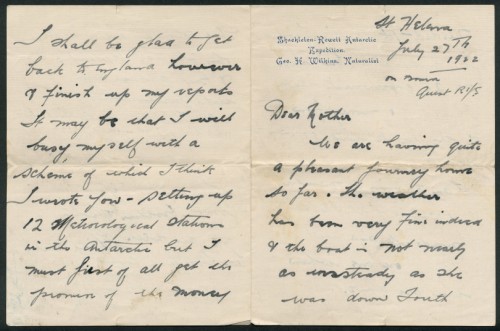 St Helena
Shackleton-Rowett Antarctic
Expedition.
Geo. H. Wilkins, Naturalist
July 27TH
1922
on
Quest R.Y.S
Dear Mother
We are having quite
a pleasant journey home
so far. The weather
has been very fine indeed
& the boat is not nearly
as unsteady as she
was down South
I shall be glad to get
back to England however
& finish up my reports
It may be that I will
busy myself with a
scheme of which I think
I wrote you - Setting up
12 Meterological Stations
in the Antarctic but I
must first of all get the
promise of the money